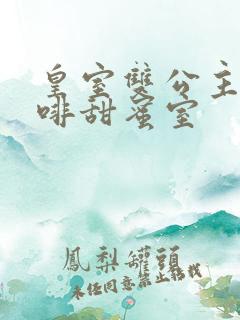 皇室雙公主
啡甜蜜室
鳳梨罐頭
未經同意禁止轉載